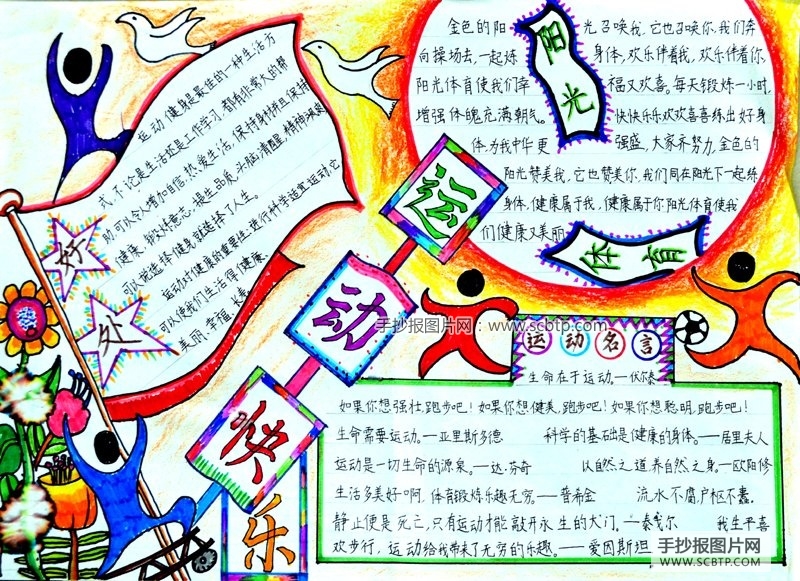 运动、健身是最佳的一种生活方
式,不论是生活还是工作学习,都有非常大的帮
助,可以令人增加自信,热爱生活,保持身材,且保持
健康,锻炼意志,提生品质,头脑清醒,精神焕发
可以说选择健身就选择了人生。
运动对健康的重要性:进行科学适宜运动,它
可以使我们生活得健康、
美丽、幸福、长寿
好
处
阳
光
金色的阳 光召唤我,它也召唤你,我们奔
向操场去,一起炼 身体,欢乐伴着我,欢乐伴着你,
阳光体育使我们幸 福又欢喜。每天锻炼一小时,
增强体魄充满朝气。 快快乐乐欢欢喜喜练出好身
体,为我中华更 强盛,大家齐努力,金色的
阳光赞美我,它也赞美你,我们同在阳光下一起练
身体,健康属于我,健康属于你阳光体育使我
们健康又美丽
体育
运
动
快
乐
手抄报图片网:www.scbtp.com
运动名言
生命在于运动。—伏尔泰
如果你想强壮,跑步吧!如果你想健美,跑步吧!如果你想聪明,跑步吧!
生命需要运动。—亚里斯多德 科学的基础是健康的身体。—居里夫人
运动是一切生命的源泉。—达·芬奇 以自然之道养自然之身—欧阳修
生活多美好啊,体育锻炼乐趣无穷—普希金 流水不腐,户枢不蠹.
静止便是死亡,只有运动才能敲开永生的大门。—泰戈尔 我生平喜
欢步行,运动给我带来了无穷的乐趣。—爱因斯坦
手抄报图片网
WWW.SCBTP.COM